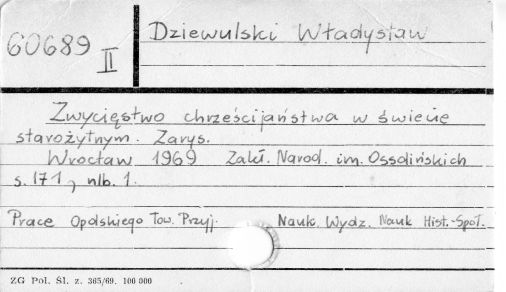 60689 II
Dziewulski Władysław
Zwycięstwo chrześcijaństwa w świecie
starożytnym. Zarys.
Wrocław 1969 Zakł. Narod. im. Ossolińskich
s. 171, nlb. 1.
Prace Opolskiego Tow. Przyj. Nauk. Wydz. Nauk Hist.-Społ.
ZG Pol. Śl. z. 365/69. 100 000